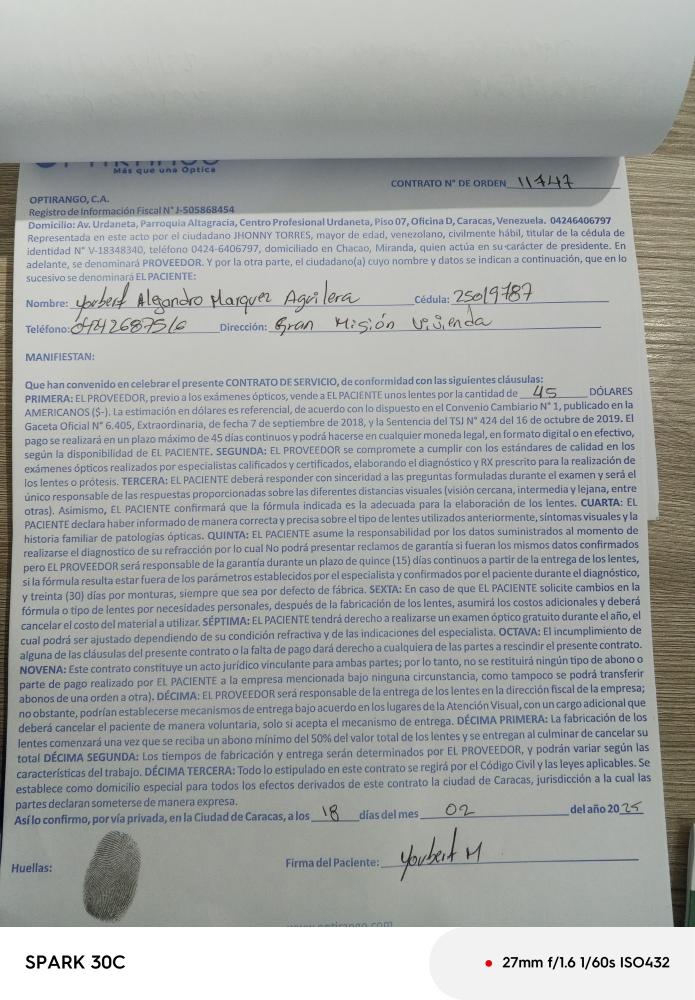 Más que una Optica
CONTRATO N° DE ORDEN 11747
OPTIRANGO, C.A.
Registro de Información Fiscal N° J-505868454
Domicilio: Av. Urdaneta, Parroquia Altagracia, Centro Profesional Urdaneta, Piso 07, Oficina D, Caracas, Venezuela. 04246406797
Representada en este acto por el ciudadano JHONNY TORRES, mayor de edad, venezolano, civilmente hábil, titular de la cédula de
identidad N° V-18348340, teléfono 0424-6406797, domiciliado en Chacao, Miranda, quien actúa en su carácter de presidente. En
adelante, se denominará PROVEEDOR. Y por la otra parte, el ciudadano(a) cuyo nombre y datos se indican a continuación, que en lo
sucesivo se denominará EL PACIENTE:
Nombre: Youbert Alejandro Marquez Aguilera Cédula: 25019787
Teléfono: 04242687516 Dirección: Gran Misión Vivienda
MANIFIESTAN:
Que han convenido en celebrar el presente CONTRATO DE SERVICIO, de conformidad con las siguientes cláusulas:
PRIMERA: EL PROVEEDOR, previo a los exámenes ópticos, vende a EL PACIENTE unos lentes por la cantidad de 45 DÓLARES
AMERICANOS ($-). La estimación en dólares es referencial, de acuerdo con lo dispuesto en el Convenio Cambiario N° 1, publicado en la
Gaceta Oficial N° 6.405, Extraordinaria, de fecha 7 de septiembre de 2018, y la Sentencia del TSJ N° 424 del 16 de octubre de 2019. El
pago se realizará en un plazo máximo de 45 días continuos y podrá hacerse en cualquier moneda legal, en formato digital o en efectivo,
según la disponibilidad de EL PACIENTE. SEGUNDA: EL PROVEEDOR se compromete a cumplir con los estándares de calidad en los
exámenes ópticos realizados por especialistas calificados y certificados, elaborando el diagnóstico y RX prescrito para la realización de
los lentes o prótesis. TERCERA: EL PACIENTE deberá responder con sinceridad a las preguntas formuladas durante el examen y será el
único responsable de las respuestas proporcionadas sobre las diferentes distancias visuales (visión cercana, intermedia y lejana, entre
otras). Asimismo, EL PACIENTE confirmará que la fórmula indicada es la adecuada para la elaboración de los lentes. CUARTA: EL
PACIENTE declara haber informado de manera correcta y precisa sobre el tipo de lentes utilizados anteriormente, síntomas visuales y la
historia familiar de patologías ópticas. QUINTA: EL PACIENTE asume la responsabilidad por los datos suministrados al momento de
realizarse el diagnostico de su refracción por lo cual No podrá presentar reclamos de garantía si fueran los mismos datos confirmados
pero EL PROVEEDOR será responsable de la garantía durante un plazo de quince (15) días continuos a partir de la entrega de los lentes,
si la fórmula resulta estar fuera de los parámetros establecidos por el especialista y confirmados por el paciente durante el diagnóstico,
y treinta (30) días por monturas, siempre que sea por defecto de fábrica. SEXTA: En caso de que EL PACIENTE solicite cambios en la
fórmula o tipo de lentes por necesidades personales, después de la fabricación de los lentes, asumirá los costos adicionales y deberá
cancelar el costo del material a utilizar. SÉPTIMA: EL PACIENTE tendrá derecho a realizarse un examen óptico gratuito durante el año, el
cual podrá ser ajustado dependiendo de su condición refractiva y de las indicaciones del especialista. OCTAVA: El incumplimiento de
alguna de las cláusulas del presente contrato o la falta de pago dará derecho a cualquiera de las partes a rescindir el presente contrato.
NOVENA: Este contrato constituye un acto jurídico vinculante para ambas partes; por lo tanto, no se restituirá ningún tipo de abono o
parte de pago realizado por EL PACIENTE a la empresa mencionada bajo ninguna circunstancia, como tampoco se podrá transferir
abonos de una orden a otra). DÉCIMA: EL PROVEEDOR será responsable de la entrega de los lentes en la dirección fiscal de la empresa;
no obstante, podrían establecerse mecanismos de entrega bajo acuerdo en los lugares de la Atención Visual, con un cargo adicional que
deberá cancelar el paciente de manera voluntaria, solo si acepta el mecanismo de entrega. DÉCIMA PRIMERA: La fabricación de los
lentes comenzará una vez que se reciba un abono mínimo del 50% del valor total de los lentes y se entregan al culminar de cancelar su
total DÉCIMA SEGUNDA: Los tiempos de fabricación y entrega serán determinados por EL PROVEEDOR, y podrán variar según las
características del trabajo. DÉCIMA TERCERA: Todo lo estipulado en este contrato se regirá por el Código Civil y las leyes aplicables. Se
establece como domicilio especial para todos los efectos derivados de este contrato la ciudad de Caracas, jurisdicción a la cual las
partes declaran someterse de manera expresa.
Así lo confirmo, por vía privada, en la Ciudad de Caracas, a los 18 días del mes 02 del año 2025
Huellas:
Firma del Paciente: Youbert M
SPARK 30C
27mm f/1.6 1/60s ISO432